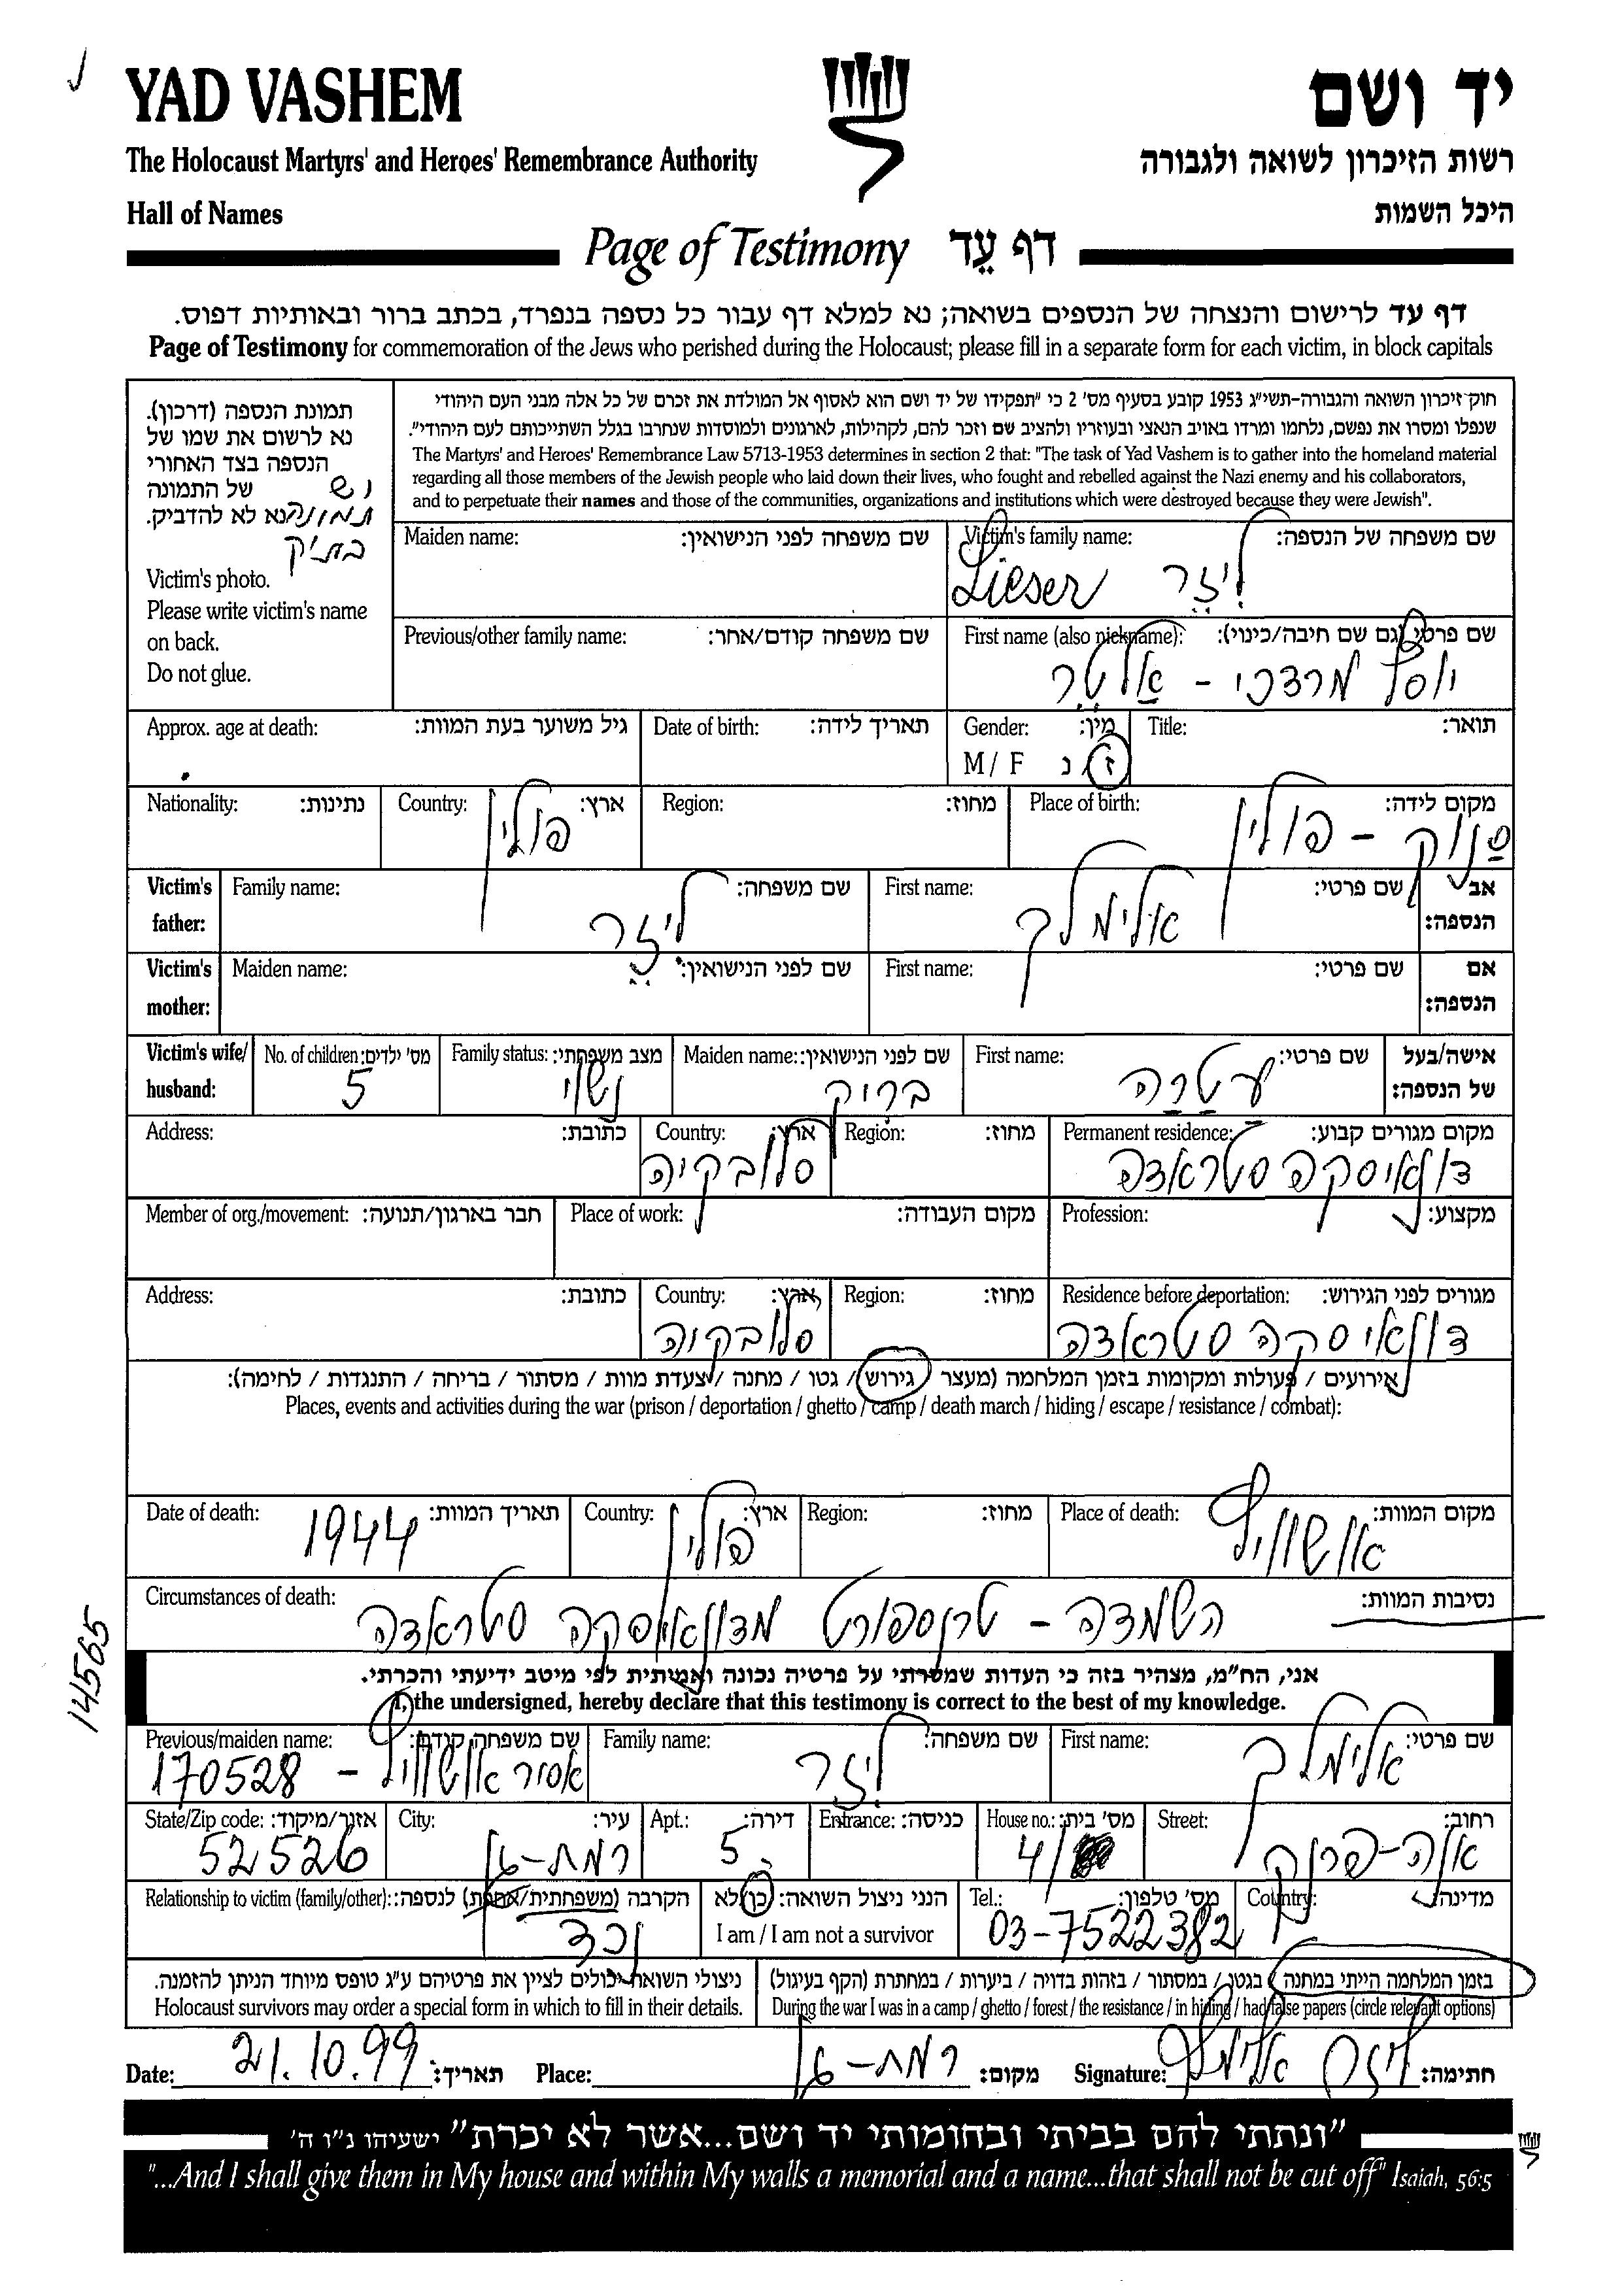 YAD VASHEM
יד ושם
The Holocaust Martyrs' and Heroes' Remembrance Authority
רשות הזיכרון לשואה ולגבורה
Hall of Names
היכל השמות
Page of Testimony דף עֵד
דף עד לרישום והנצחה של הנספים בשואה; נא למלא דף עבור כל נספה בנפרד, בכתב ברור ובאותיות דפוס.
Page of Testimony for commemoration of the Jews who perished during the Holocaust; please fill in a separate form for each victim, in block capitals
תמונת הנספה (דרכון).
נא לרשום את שמו של
הנספה בצד האחורי
של התמונה יש
נא לא להדביק. תמונה
בתיק
Victim's photo.
Please write victim's name
on back.
Do not glue.
חוק זיכרון השואה והגבורה-תשי"ג 1953 קובע בסעיף מס' 2 כי "תפקידו של יד ושם הוא לאסוף אל המולדת את זכרם של כל אלה מבני העם היהודי
שנפלו ומסרו את נפשם, נלחמו ומרדו באויב הנאצי ובעוזריו ולהציב שם וזכר להם, לקהילות, לארגונים ולמוסדות שנחרבו בגלל השתייכותם לעם היהודי".
The Martyrs' and Heroes' Remembrance Law 5713-1953 determines in section 2 that: "The task of Yad Vashem is to gather into the homeland material
regarding all those members of the Jewish people who laid down their lives, who fought and rebelled against the Nazi enemy and his collaborators,
and to perpetuate their names and those of the communities, organizations and institutions which were destroyed because they were Jewish".
שם משפחה של הנספה: Victim's family name:
ליזר Lieser
שם משפחה לפני הנישואין: Maiden name:
שם פרטי (גם שם חיבה/כינוי): First name (also nickname):
יוסף מרדכי - אלטר
שם משפחה קודם/אחר: Previous/other family name:
תואר: Title:
מין: Gender:
ז / נ M / F
תאריך לידה: Date of birth:
גיל משוער בעת המוות: Approx. age at death:
מקום לידה: Place of birth:
סנוק - פולין
מחוז: Region:
ארץ: Country:
פולין
נתינות: Nationality:
אב הנספה: Victim's father:
שם פרטי: First name:
אלימלך
שם משפחה: Family name:
ליזר
אם הנספה: Victim's mother:
שם פרטי: First name:
שם לפני הנישואין: Maiden name:
אישה/בעל של הנספה: Victim's wife/ husband:
שם פרטי: First name:
עטרה
שם לפני הנישואין: Maiden name:
ברוק
מצב משפחתי: Family status:
נשוי
מס' ילדים: No. of children:
5
מקום מגורים קבוע: Permanent residence:
דונאיסקה סטראדה
מחוז: Region:
ארץ: Country:
סלובקיה
כתובת: Address:
מקצוע: Profession:
מקום העבודה: Place of work:
חבר בארגון/תנועה: Member of org./movement:
מגורים לפני הגירוש: Residence before deportation:
דונאיסקה סטראדה
מחוז: Region:
ארץ: Country:
סלובקיה
כתובת: Address:
אירועים / פעולות ומקומות בזמן המלחמה (מעצר / גירוש / גטו / מחנה / צעדת מוות / מסתור / בריחה / התנגדות / לחימה):
Places, events and activities during the war (prison / deportation / ghetto / camp / death march / hiding / escape / resistance / combat):
מקום המוות: Place of death:
אושוויץ
מחוז: Region:
ארץ: Country:
פולין
תאריך המוות: Date of death:
1944
נסיבות המוות: Circumstances of death:
השמדה - טרנספורט סטראדה
אני, הח"מ, מצהיר בזה כי העדות שמסרתי על פרטיה נכונה ואמיתית לפי מיטב ידיעתי והכרתי.
I, the undersigned, hereby declare that this testimony is correct to the best of my knowledge.
שם פרטי: First name:
אלימלך
שם משפחה: Family name:
ליזר
שם משפחה קודם: Previous/maiden name:
אסיר אושוויץ - 170528
רחוב: Street:
אלה-פרוק
מס' בית: House no.:
4/
כניסה: Entrance:
דירה: Apt.:
5
עיר: City:
רמת-גן
אזור/מיקוד: State/Zip code:
52526
מדינה: Country:
מס' טלפון: Tel.:
03-7522382
הנני ניצול השואה: כן/לא
I am / I am not a survivor
הקרבה (משפחתית/אחרת) לנספה: Relationship to victim (family/other):
נכד
בזמן המלחמה הייתי במחנה / בגטו / במסתור / בזהות בדויה / ביערות / במחתרת (הקף בעיגול)
During the war I was in a camp / ghetto / forest / the resistance / in hiding / had false papers (circle relevant options)
ניצולי השואה יכולים לציין את פרטיהם ע"ג טופס מיוחד הניתן להזמנה.
Holocaust survivors may order a special form in which to fill in their details.
חתימה: ליזר אלימלך Signature:
מקום: רמת-גן Place:
תאריך: 21.10.99 Date:
14565
"ונתתי להם בביתי ובחומותי יד ושם...אשר לא יכרת" ישעיהו נ"ו ה'
"...And I shall give them in My house and within My walls a memorial and a name...that shall not be cut off" Isaiah, 56:5